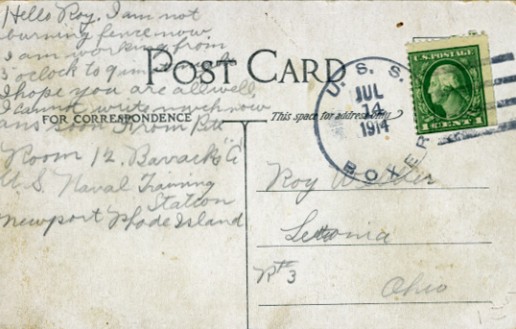 Hello Roy. I am not
burning fence now
I am working from
3 oclock to 9
I hope you are all well.
I cannot write much now
ans soon From
Room 12. Barrack "A"
U S Naval Training
Station
Newport Rhode Island
POST CARD
FOR CORRESPONDENCE
This space for address only
U. S. S.
JUL
14
1914
BOXER
U.S. POSTAGE
Roy
Leetonia
Rt 3
Ohio